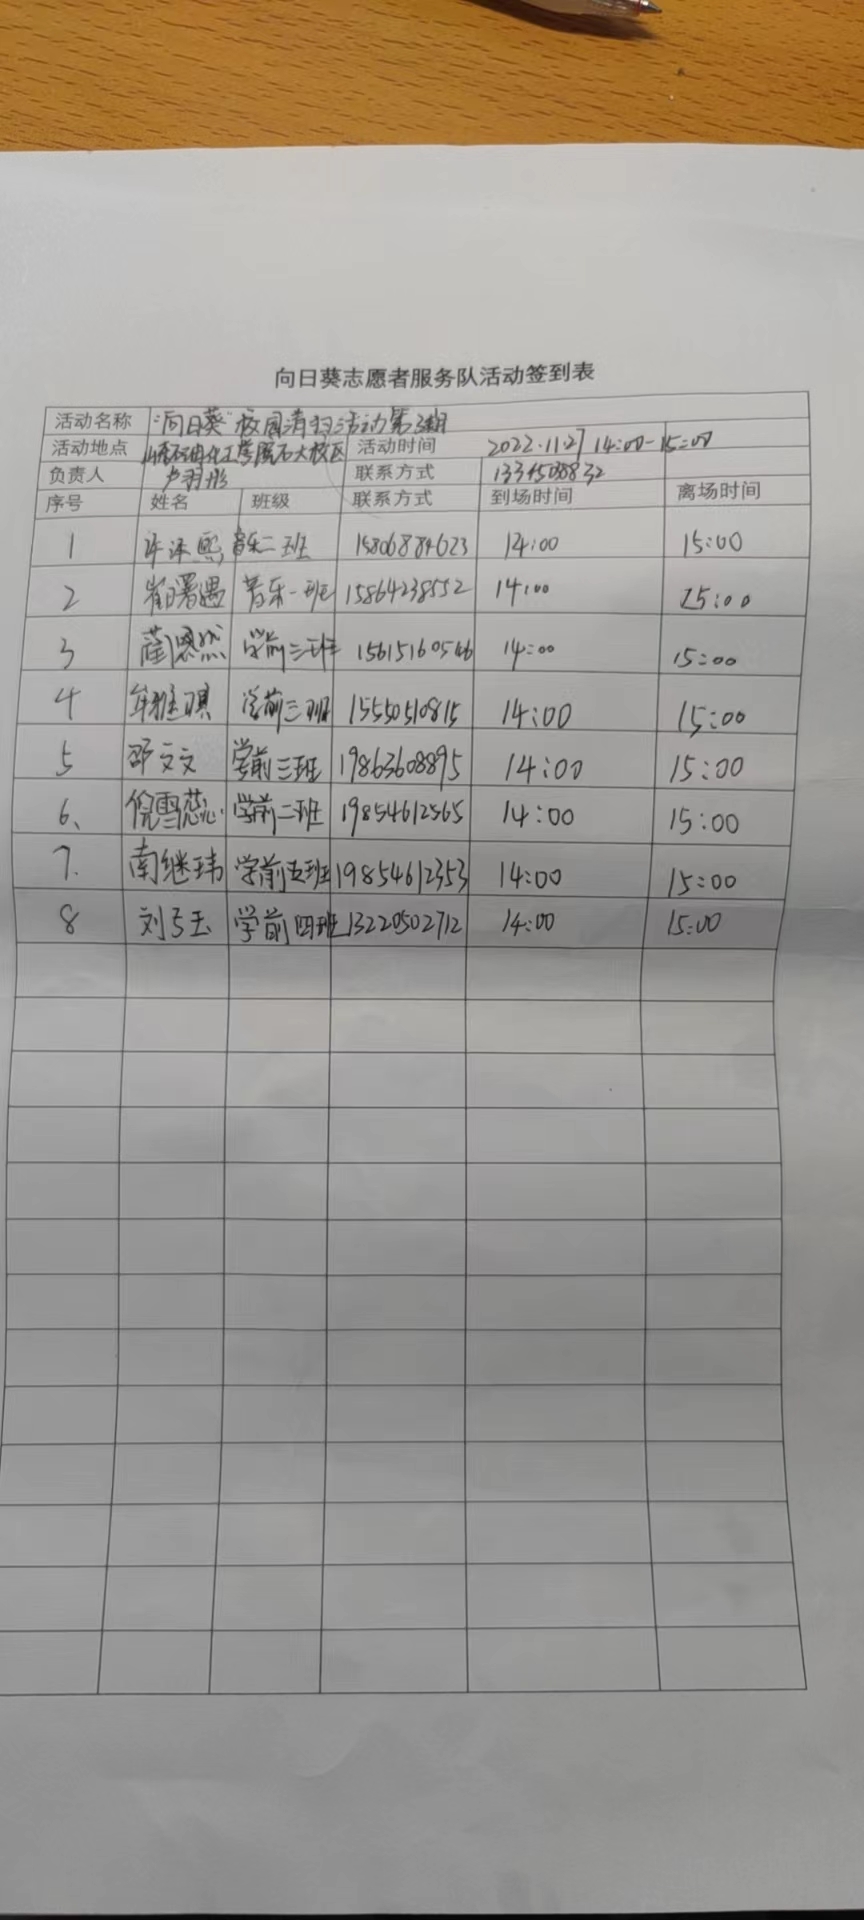 向日葵志愿者服务队活动签到表
活动名称 "向日葵"校园清扫活动第3期
活动地点 石油化工学院石大校区 活动时间 2022.11.27 14:00-15:00
负责人 卢羽彤 联系方式
序号 姓名 班级 联系方式 到场时间 离场时间
1 音乐二班 15806884623 14:00 15:00
2 崔曙遇 音乐一班 15864238552 14:00 15:00
3 蔺恩然 学前三班 15615160546 14:00 15:00
4 牟雅琪 学前三班 15550510815 14:00 15:00
5 邵文文 学前三班 19863608895 14:00 15:00
6、 倪雪蕊 学前二班 19854612565 14:00 15:00
7. 南继玮 学前五班 19854612353 14:00 15:00
8 刘弓玉 学前四班 13220502712 14:00 15:00